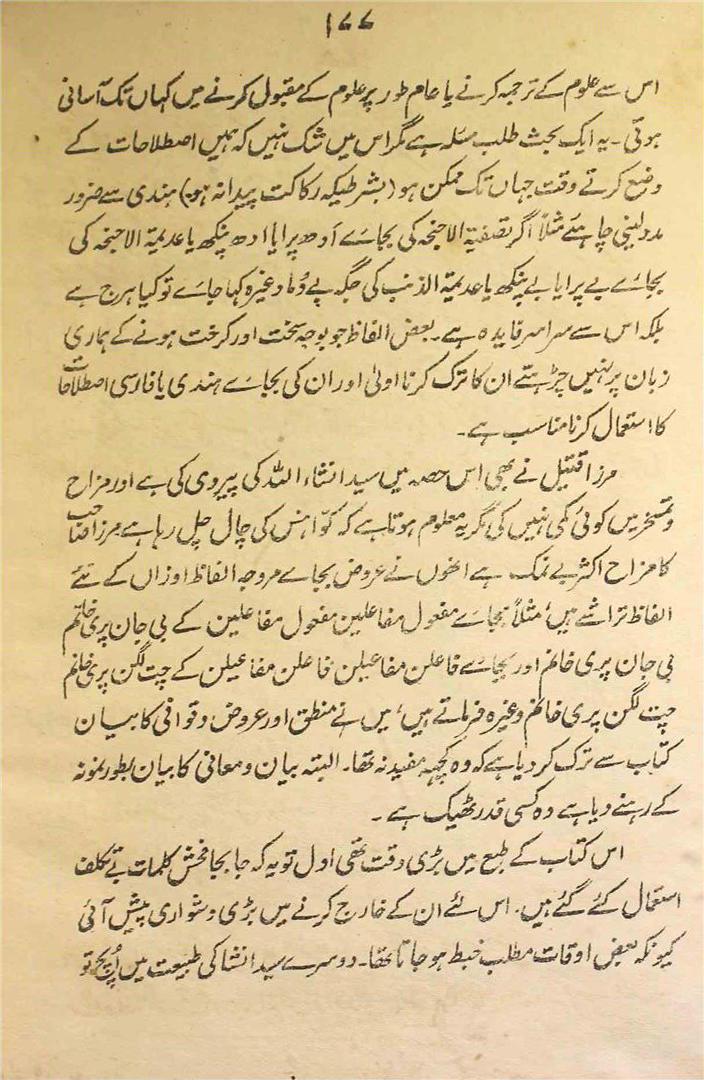 ۱۷۷
اس سے علوم کے ترجمہ کرنے یا عام طور پر علوم کے مقبول کرنے میں کہاں تک آسانی
ہوتی۔ یہ ایک بحث طلب مسئلہ ہے مگر اس میں شک نہیں کہ ہمیں اصطلاحات کے
وضع کرتے وقت جہاں تک ممکن ہو (بشرطیکہ رکاکت پیدا نہ ہو) ہندی سے ضرور
مدد لینی چاہئے مثلاً اگر نصفیۃ الاجنحہ کی بجاے اَدھ پرا یا ادھ پنکھ یا عدیمۃ الاجنحہ کی
بجاے بے پرا یا بے پنکھ یا عدیمۃ الذنب کی جگہ بے دُما وغیرہ کہا جاے تو کیا ہرج ہے
بلکہ اس سے سراسر فایدہ ہے۔ بعض الفاظ جو بوجہ سخت اور کرخت ہونے کے ہماری
زبان پر نہیں چڑہتے ان کا ترک کرنا اولیٰ اور ان کی بجاے ہندی یا فارسی اصطلاحات
کا استعمال کرنا مناسب ہے۔
مرزا قتیل نے بھی اِس حصہ میں سید انشاء اللہ کی پیروی کی ہے اور مزاح
و تمسخر میں کوئی کمی نہیں کی مگر یہ معلوم ہوتا ہے کہ کوّا ہنس کی چال چل رہا ہے مرزا صاحب
کا مزاح اکثر بے نمک ہے انھوں نے عروض بجاے مروجہ الفاظ اوزان کے نئے
الفاظ تراشے ہیں، مثلاً بجاے مفعول مفاعلین مفعول مفاعلین کے بی جان پری خانم
بی جان پری خانم اور بجاے فاعلن مفاعیلن فاعلن مفاعیلن کے چت لگن پری خانم
چت لگن پری خانم وغیرہ فرماتے ہیں، میں نے منطق اور عروض و قوافی کا بیان
کتاب سے ترک کر دیا ہے کہ وہ کچھہ مفید نہ تھا۔ البتہ بیان و معانی کا بیان بطور نمونہ
کے رہنے دیا ہے وہ کسی قدر ٹھیک ہے۔
اس کتاب کے طبع میں بڑی دقت تھی اول تو یہ کہ جا بجا فحش کلمات بے تکلف
استعمال کئے گئے ہیں۔ اس لئے ان کے خارج کرنے میں بڑی دشواری پیش آئی
کیونکہ بعض اوقات مطلب خبط ہو جاتا تھا۔ دوسرے سید انشا کی طبیعت میں اُپج تو